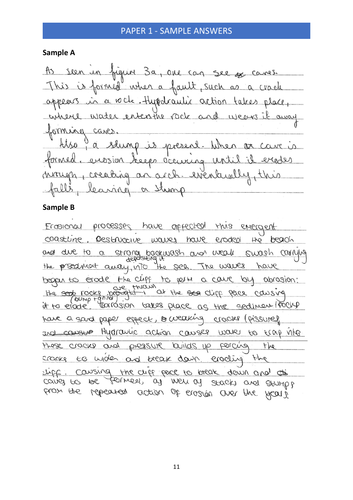 PAPER 1 - SAMPLE ANSWERS
Sample A
As seen in figure 3a, one can see caves.
This is formed when a fault, such as a crack
appears in a rock. Hydraulic action takes place,
where water enters the rock and wears it away
forming caves.
Also, a stump is present. When a cave is
formed, erosion keeps occuring until it erodes
through, creating an arch. eventually, this
falls, leaving a stump
Sample B
Erosional processes have affected this emergent
coastline. Destructive waves have eroded the beach
and due to a strong backwash and weak swash carrying
depositing it
the sediment away, into the sea. The waves have
began to erode the cliff to form a cave by abrasion:
are thrown
the rocks at the cliff face causing
it to erode. Corrasion takes place as the sediment/rocks
have a sand paper effect, creating cracks (fissures)
Hydraulic action causes waves to trap into
these cracks and pressure builds up forcing the
cracks to widen and break down eroding the
cliff. Causing the cliff face to break down and
caves to be formed, as well as stacks and stumps
from the repeated action of erosion over the years
11